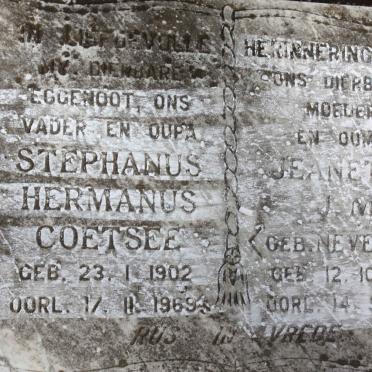 IN LIEFDEVOLLE
MY DIERBARE
EGGENOOT, ONS
VADER EN OUPA
STEPHANUS
HERMANUS
COETSEE
GEB. 23. 1. 1902
OORL. 17. 11. 1969
HERINNERING
ONS DIERB
MOEDER
EN OUM
JEANET
J. M
GEB. NEVE
GEB. 12. 10
OORL. 14.
RUS IN VREDE